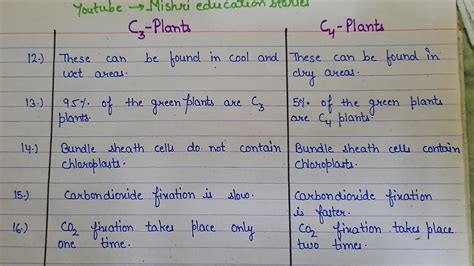 Youtube → Mishri education stories
C3-Plants C4-Plants
12.) These can be found in cool and These can be found in
wet areas. dry areas.
13.) 95% of the green plants are C3 5% of the green plants
plants. are C4 plants.
14.) Bundle sheath cells do not contain Bundle sheath cells contain
chloroplasts. chloroplasts.
15.) Carbondioxide fixation is slow. Carbondioxide fixation
is faster.
16.) CO2 fixation takes place only CO2 fixation takes place
one time. two times.